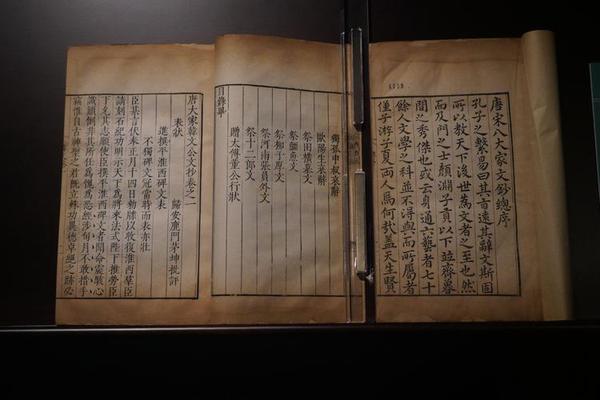 唐宋八大家文鈔總序
孔子之繫易曰其旨遠其辭文斯固
所以教天下後世為文者之至也然
而及門之士顏淵子貢以下並齊魯
間之秀傑也或云身通六藝者七十
餘人文學之科並不得與而所屬者
僅子游子夏兩人焉何哉蓋天生賢
獨孤申叔哀辭
歐陽生哀辭
祭田橫墓文
祭鱷魚文
祭柳子厚文
祭河南張員外文
祭十二郎文
贈太傅董公行狀
目錄畢
唐大家韓文公文抄卷之一
歸安鹿門茅坤批評
表狀
進撰平淮西碑文表
不獨碑文冠當時而表亦壯
臣某言伏奉正月十四日勅牒以收復淮西羣臣
請刻石紀功明示天下為將來法式陛下推勞臣
下允其志願使臣撰平淮西碑文者聞命震駭心
識顛倒非其所任為愧為恐經涉旬月不敢措手
竊惟自古神聖之君既立殊功異德卓絕之跡必